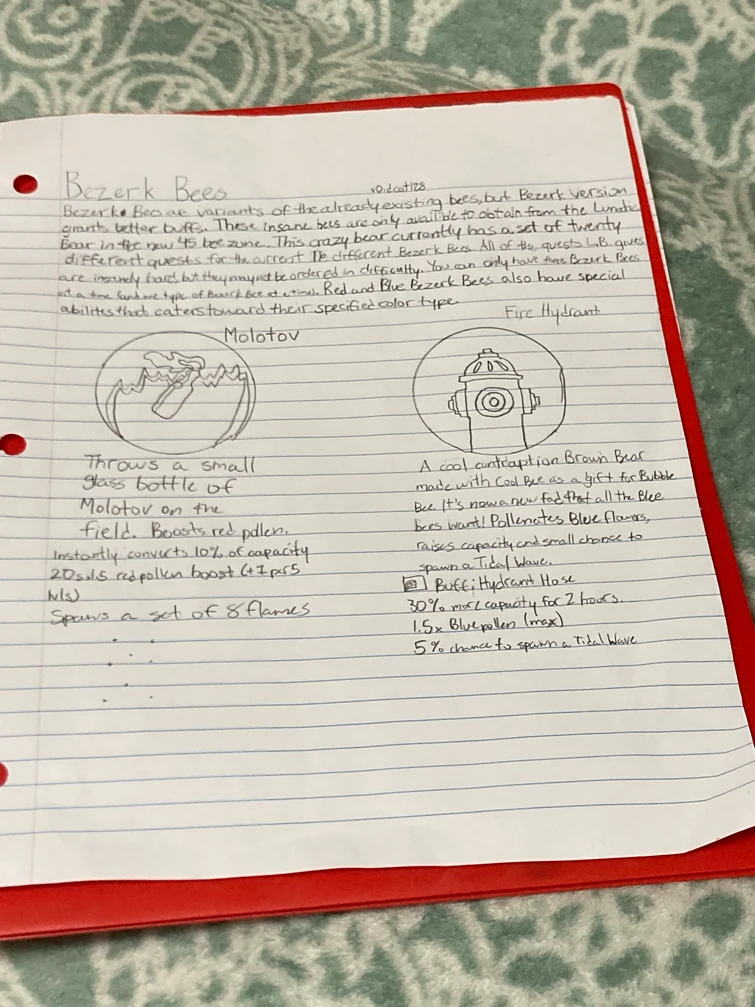 Bezerk Bees
v0.dcat128
Bezerk Bees are variants of the already existing bees, but Bezerk version
grants better buffs. These insane bees are only availible to obtain from the Lunatic
Bear in the new 45 bee zone. This crazy bear currently has a set of twenty
different quests for the current different Bezerk Bees. All of the quests L.B. gives
are insanely hard, but they may not be ordered in difficulty. You can only have three Bezerk Bees
at a time (and one type of Bezerk Bee at a time). Red and Blue Bezerk Bees also have special
abilites that caters toward their specified color type.
Molotov
Throws a small
glass bottle of
Molotov on the
field. Boosts red pollen.
Instantly converts 10% of capacity
20s 1.5 red pollen boost (+1 per 5
lvls)
Spawns a set of 8 flames
Fire Hydrant
A cool contraption Brown Bear
made with Cool Bee as a gift for Bubble
Bee. It's now a new fad that all the Blue
bees want! Pollenates Blue flowers,
raises capacity and small chance to
spawn a Tidal Wave.
Buff: Hydrant Hose
30% more capacity for 2 hours.
1.5x Blue pollen (max)
5% chance to spawn a Tidal Wave